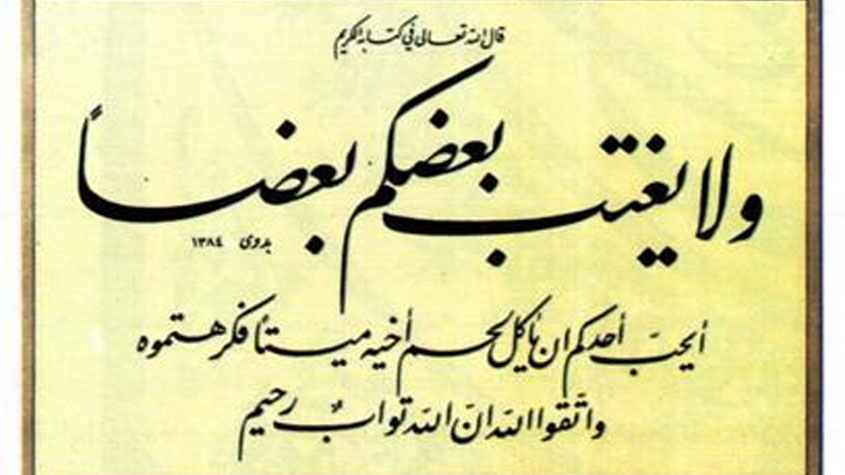 قال الله تعالى في كتابه الكريم
ولا يغتب بعضكم بعضاً
بدوى ١٣٨٤
أيحبّ أحدكم ان يأكل لحم أخيه ميتاً فكرهتموه
واتّقوا الله انّ الله توابٌ رحيم